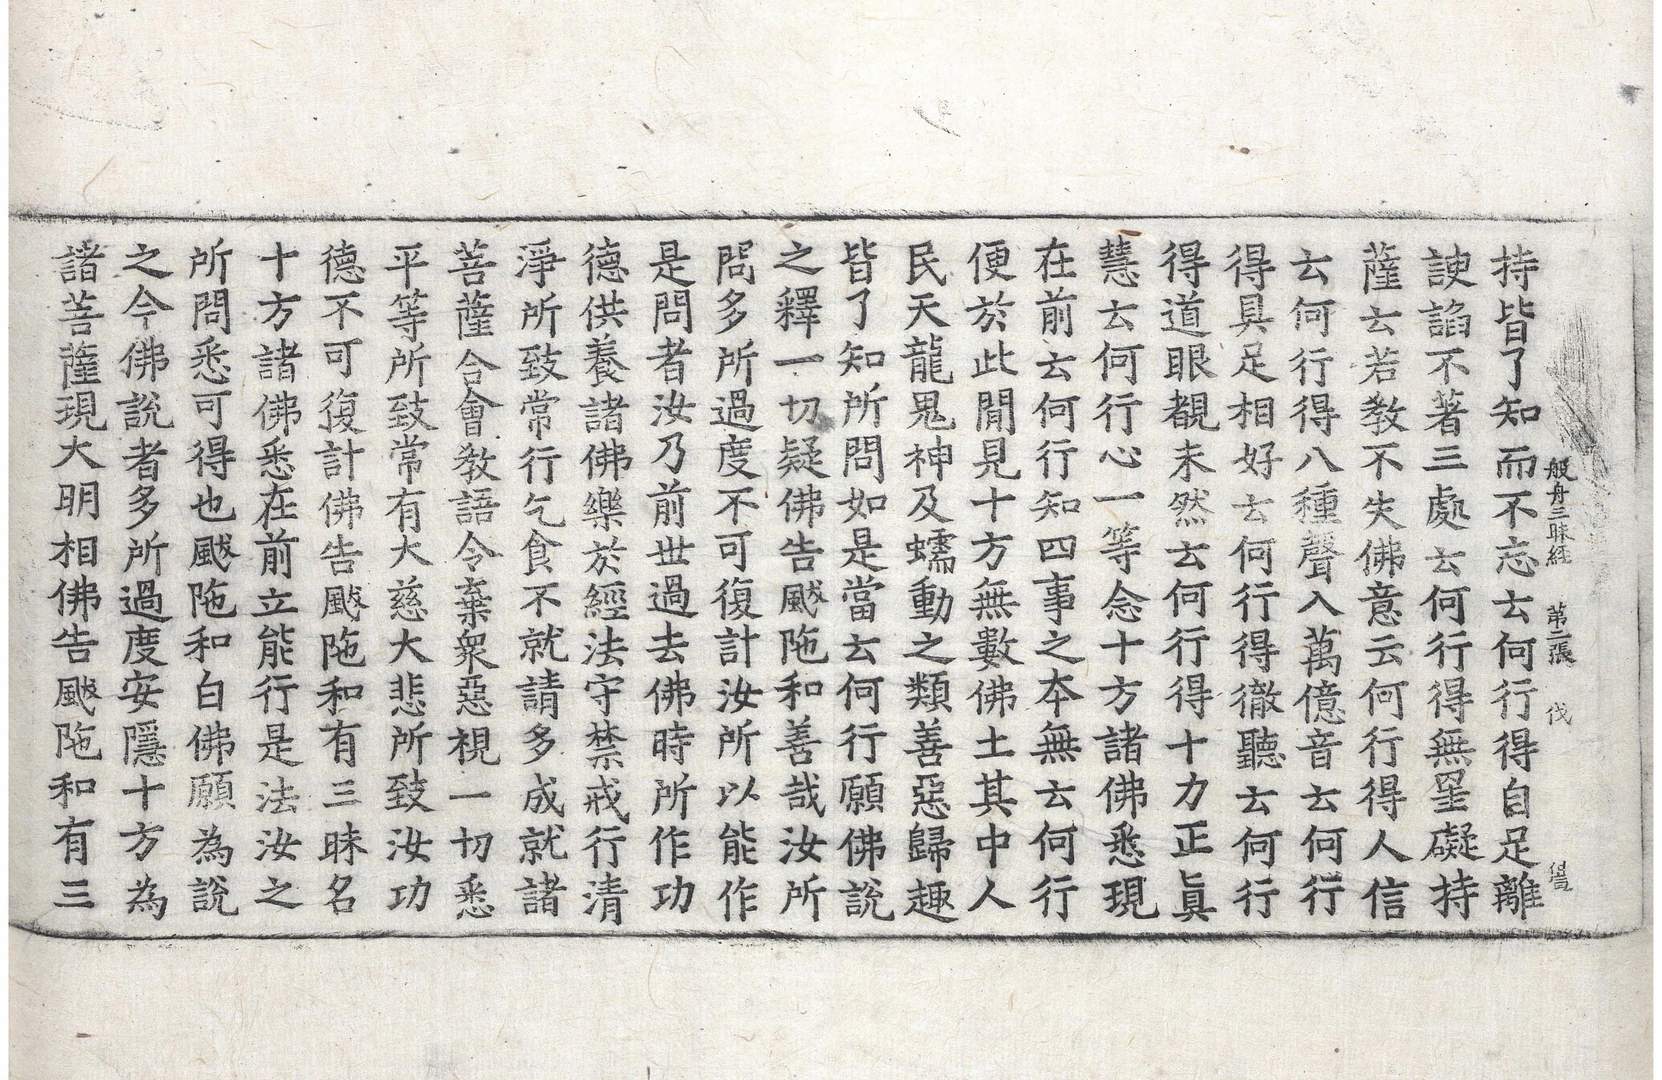 般舟三昧経 第二張 伐
持皆了知而不忘云何行得自足離
諛諂不著三處云何行得無罣礙持
薩云若教不失佛意云何行得人信
云何行得八種聲入萬億音云何行
得具足相好云何行得徹聽云何行
得道眼覩未然云何行得十力正眞
慧云何行心一等念十方諸佛悉現
在前云何行知四事之本無云何行
便於此閒見十方無數佛土其中人
民天龍鬼神及蠕動之類善惡歸趣
皆了知所問如是當云何行願佛說
之釋一切疑佛告颰陁和善哉汝所
問多所過度不可復計汝所以能作
是問者汝乃前世過去佛時所作功
德供養諸佛樂於經法守禁戒行清
淨所致常行乞食不就請多成就諸
菩薩合會教語令棄衆惡視一切悉
平等所致常有大慈大悲所致汝功
德不可復計佛告颰陁和有三昧名
十方諸佛悉在前立能行是法汝之
所問悉可得也颰陁和白佛願為說
之今佛說者多所過度安隱十方為
諸菩薩現大明相佛告颰陁和有三